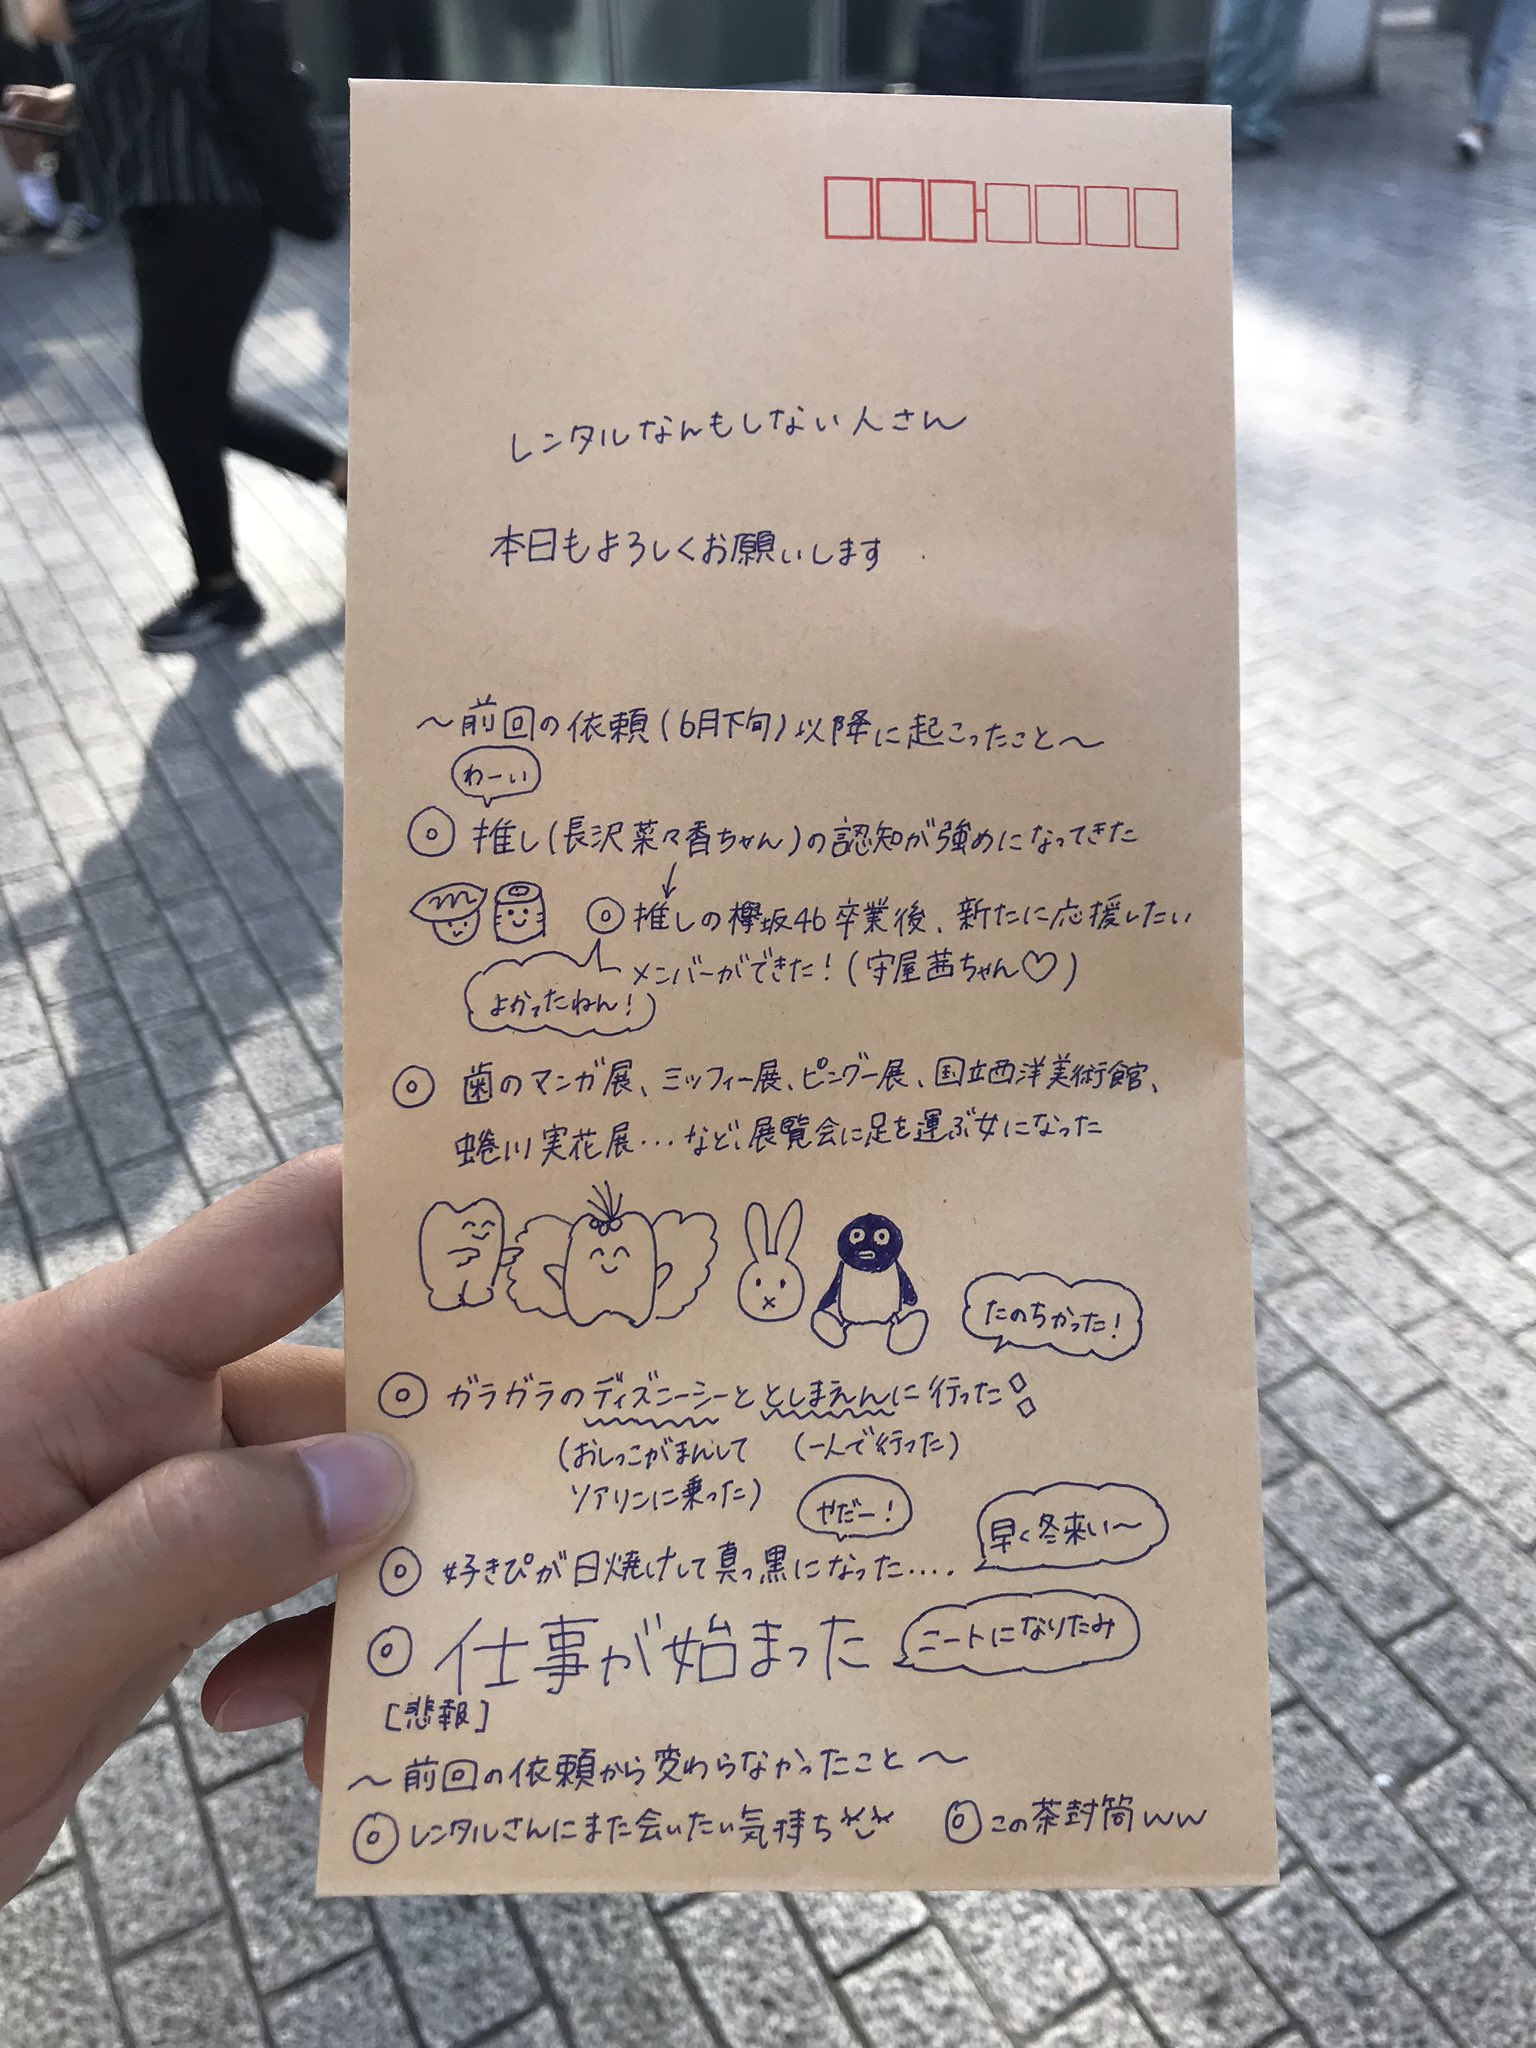 レンタルなんもしない人さん
本日もよろしくお願いします
〜前回の依頼(6月下旬)以降に起こったこと〜
わーい
◎推し(長沢菜々香ちゃん)の認知が強めになってきた
↓
◎推しの欅坂46卒業後、新たに応援したい
メンバーができた！(守屋茜ちゃん♡)
よかったねん！
◎歯のマンガ展、ミッフィー展、ピングー展、国立西洋美術館、
蜷川実花展・・・など、展覧会に足を運ぶ女になった
たのちかった！
◎ガラガラのディズニーシーととしまえんに行った
(おしっこがまんして
ソアリンに乗った)
(一人で行った)
やだー！
◎好きぴが日焼けして真っ黒になった‥‥
早く冬来い〜
◎仕事が始まった
ニートになりたみ
[悲報]
〜前回の依頼から変わらなかったこと〜
◎レンタルさんにまた会いたい気持ち
◎この茶封筒ww